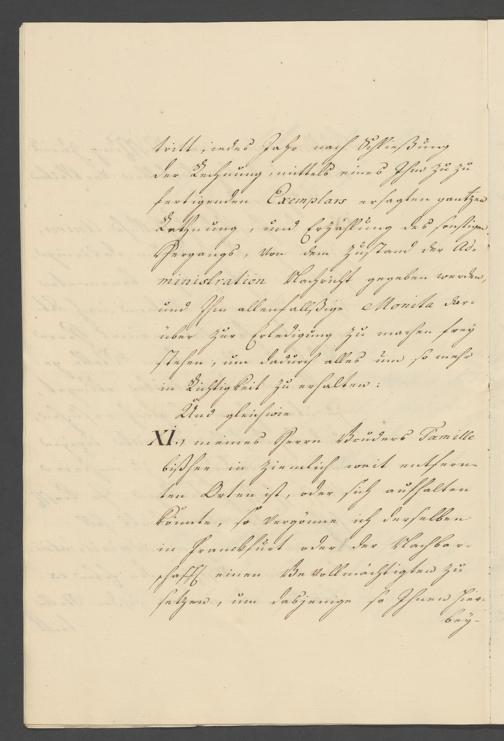 tritt, jedes Jahr nach Schließung
der Rechnung mittels eines Ihm zu zu
fertigenden Exemplars ersagten gantzen
Rechnung, und Erzählung des sonstigen
Hergangs, von dem Zustand der Ad-
ministration Nachricht gegeben werden,
und Ihm allenfallsige Monita dar-
über zur Erledigung zu machen frey
stehen, um dadurch alles um so mehr
in Richtigkeit zu erhalten:
Und gleichwie
XI.) meines Herrn Bruders Famille
bißher in ziemlich weit entfern-
ten Orten ist, oder sich aufhalten
könnte, so vergönne ich derselben
in Franckfurt oder der Nachbar-
schafft einen Bevollmächtigten zu
setzen, um dasjenige so Ihnen hier-
bey-